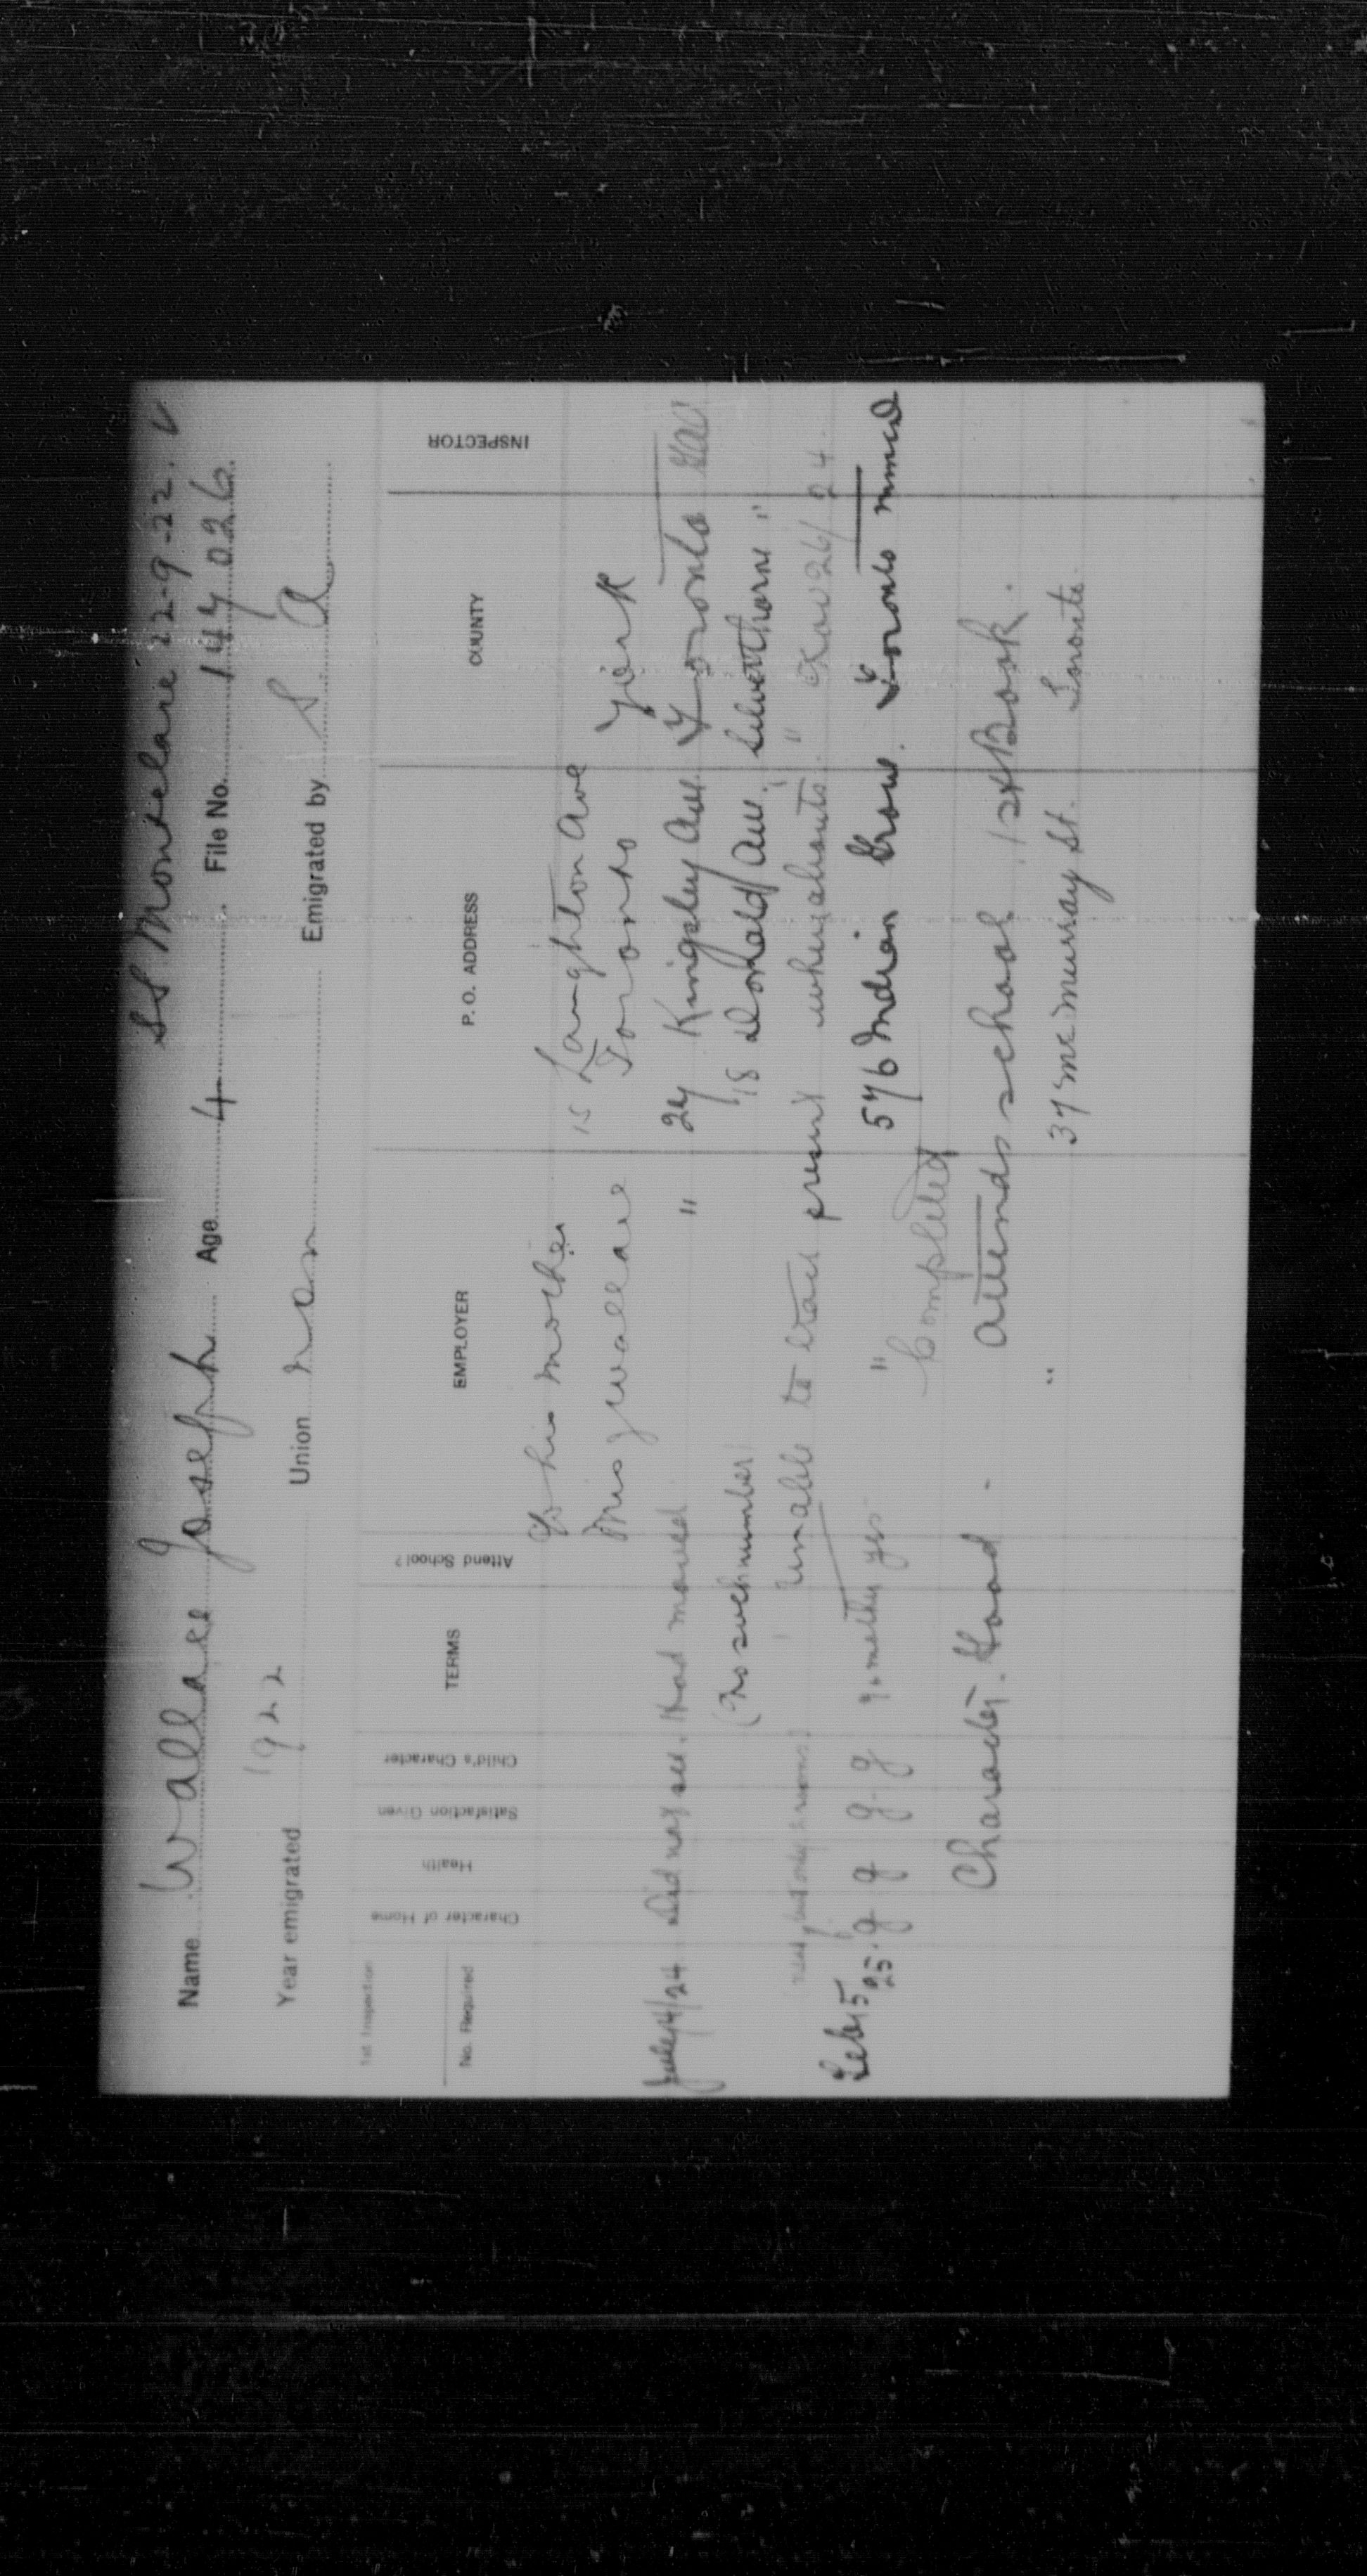 SS Montclare 22-9-22. V
Name Wallace Joseph Age 4 File No. 147026
Year emigrated 1922 Union non Emigrated by S. A
1st Inspection
No. Required
Character of Home
Health
Satisfaction Given
Child's Character
TERMS
Attend School?
EMPLOYER
P. O. ADDRESS
COUNTY
INSPECTOR
To his mother 15 Laughton Ave
Mrs J Wallace Toronto York
July 4/24 Did not see. Had moved. " 27 Kingsley Ave. Toronto
(No such number) 18 Donald Ave. Silverthorne "
unable to trace present whereabouts. " 26/24.
Feb 15 25. g g g. g mother yes " 576 Indian Grove. Toronto
Completed
Character. Good. Attends school. 1st Book.
" 37 McMurray St. Toronto.